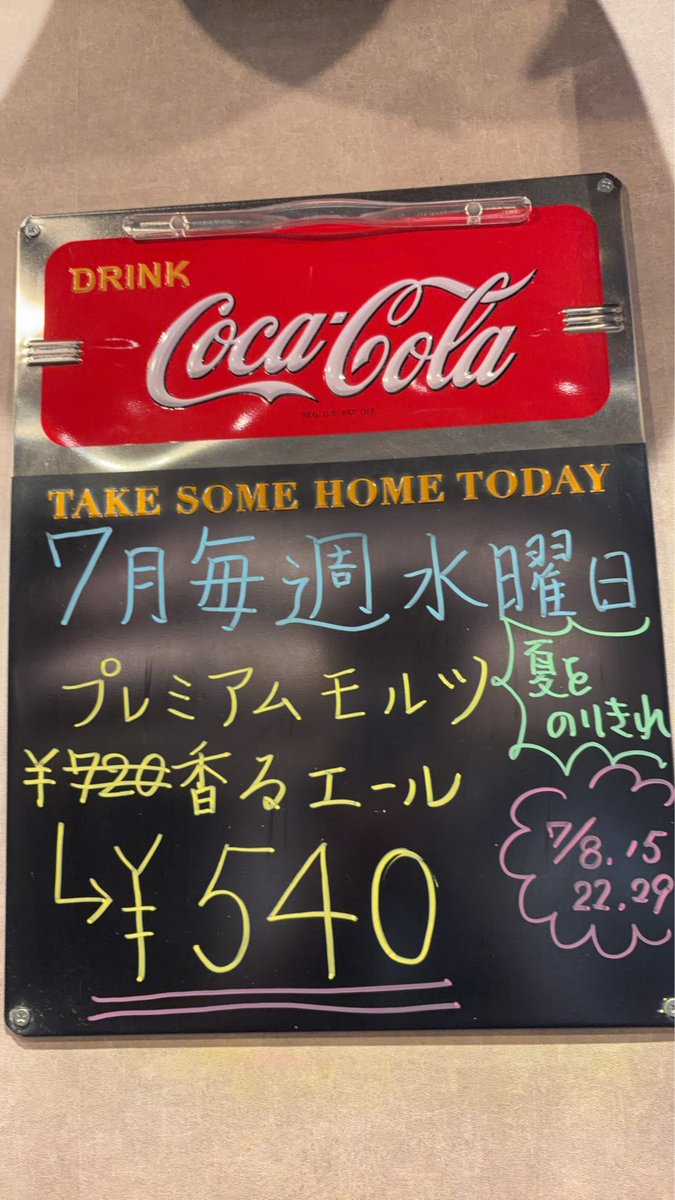 DRINK
Coca-Cola
REG. U.S. PAT. OFF.
TAKE SOME HOME TODAY
7月毎週水曜日
プレミアムモルツ
夏を
のりきれ
¥720 香るエール
¥540
7/8.15
22.29